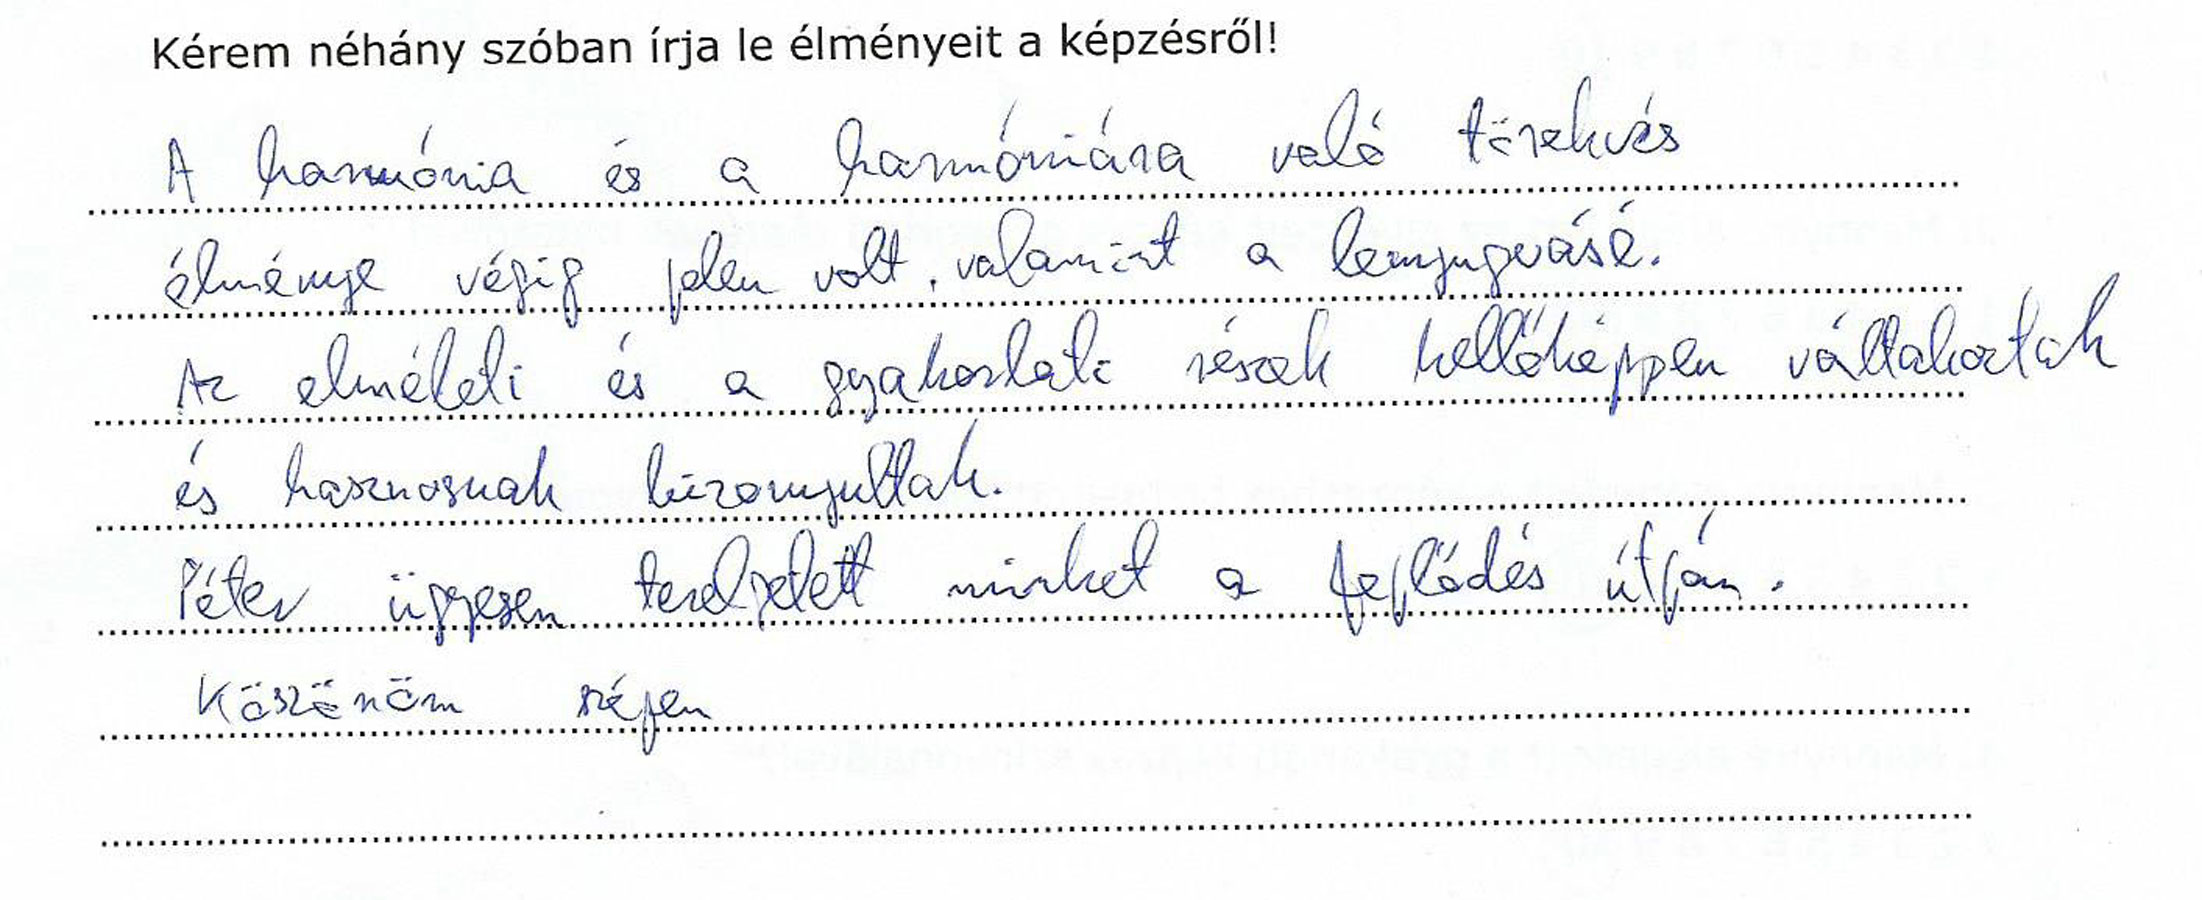 Kérem néhány szóban írja le élményeit a képzésről!
A harmónia és a harmóniára való törekvés
élménye végig jelen volt, valamint a lenyugvásé.
Az elméleti és a gyakorlati részek kellőképpen váltakoztak
és hasznosnak bizonyultak.
Péter ügyesen terelgetett minket a fejlődés útján.
Köszönöm szépen